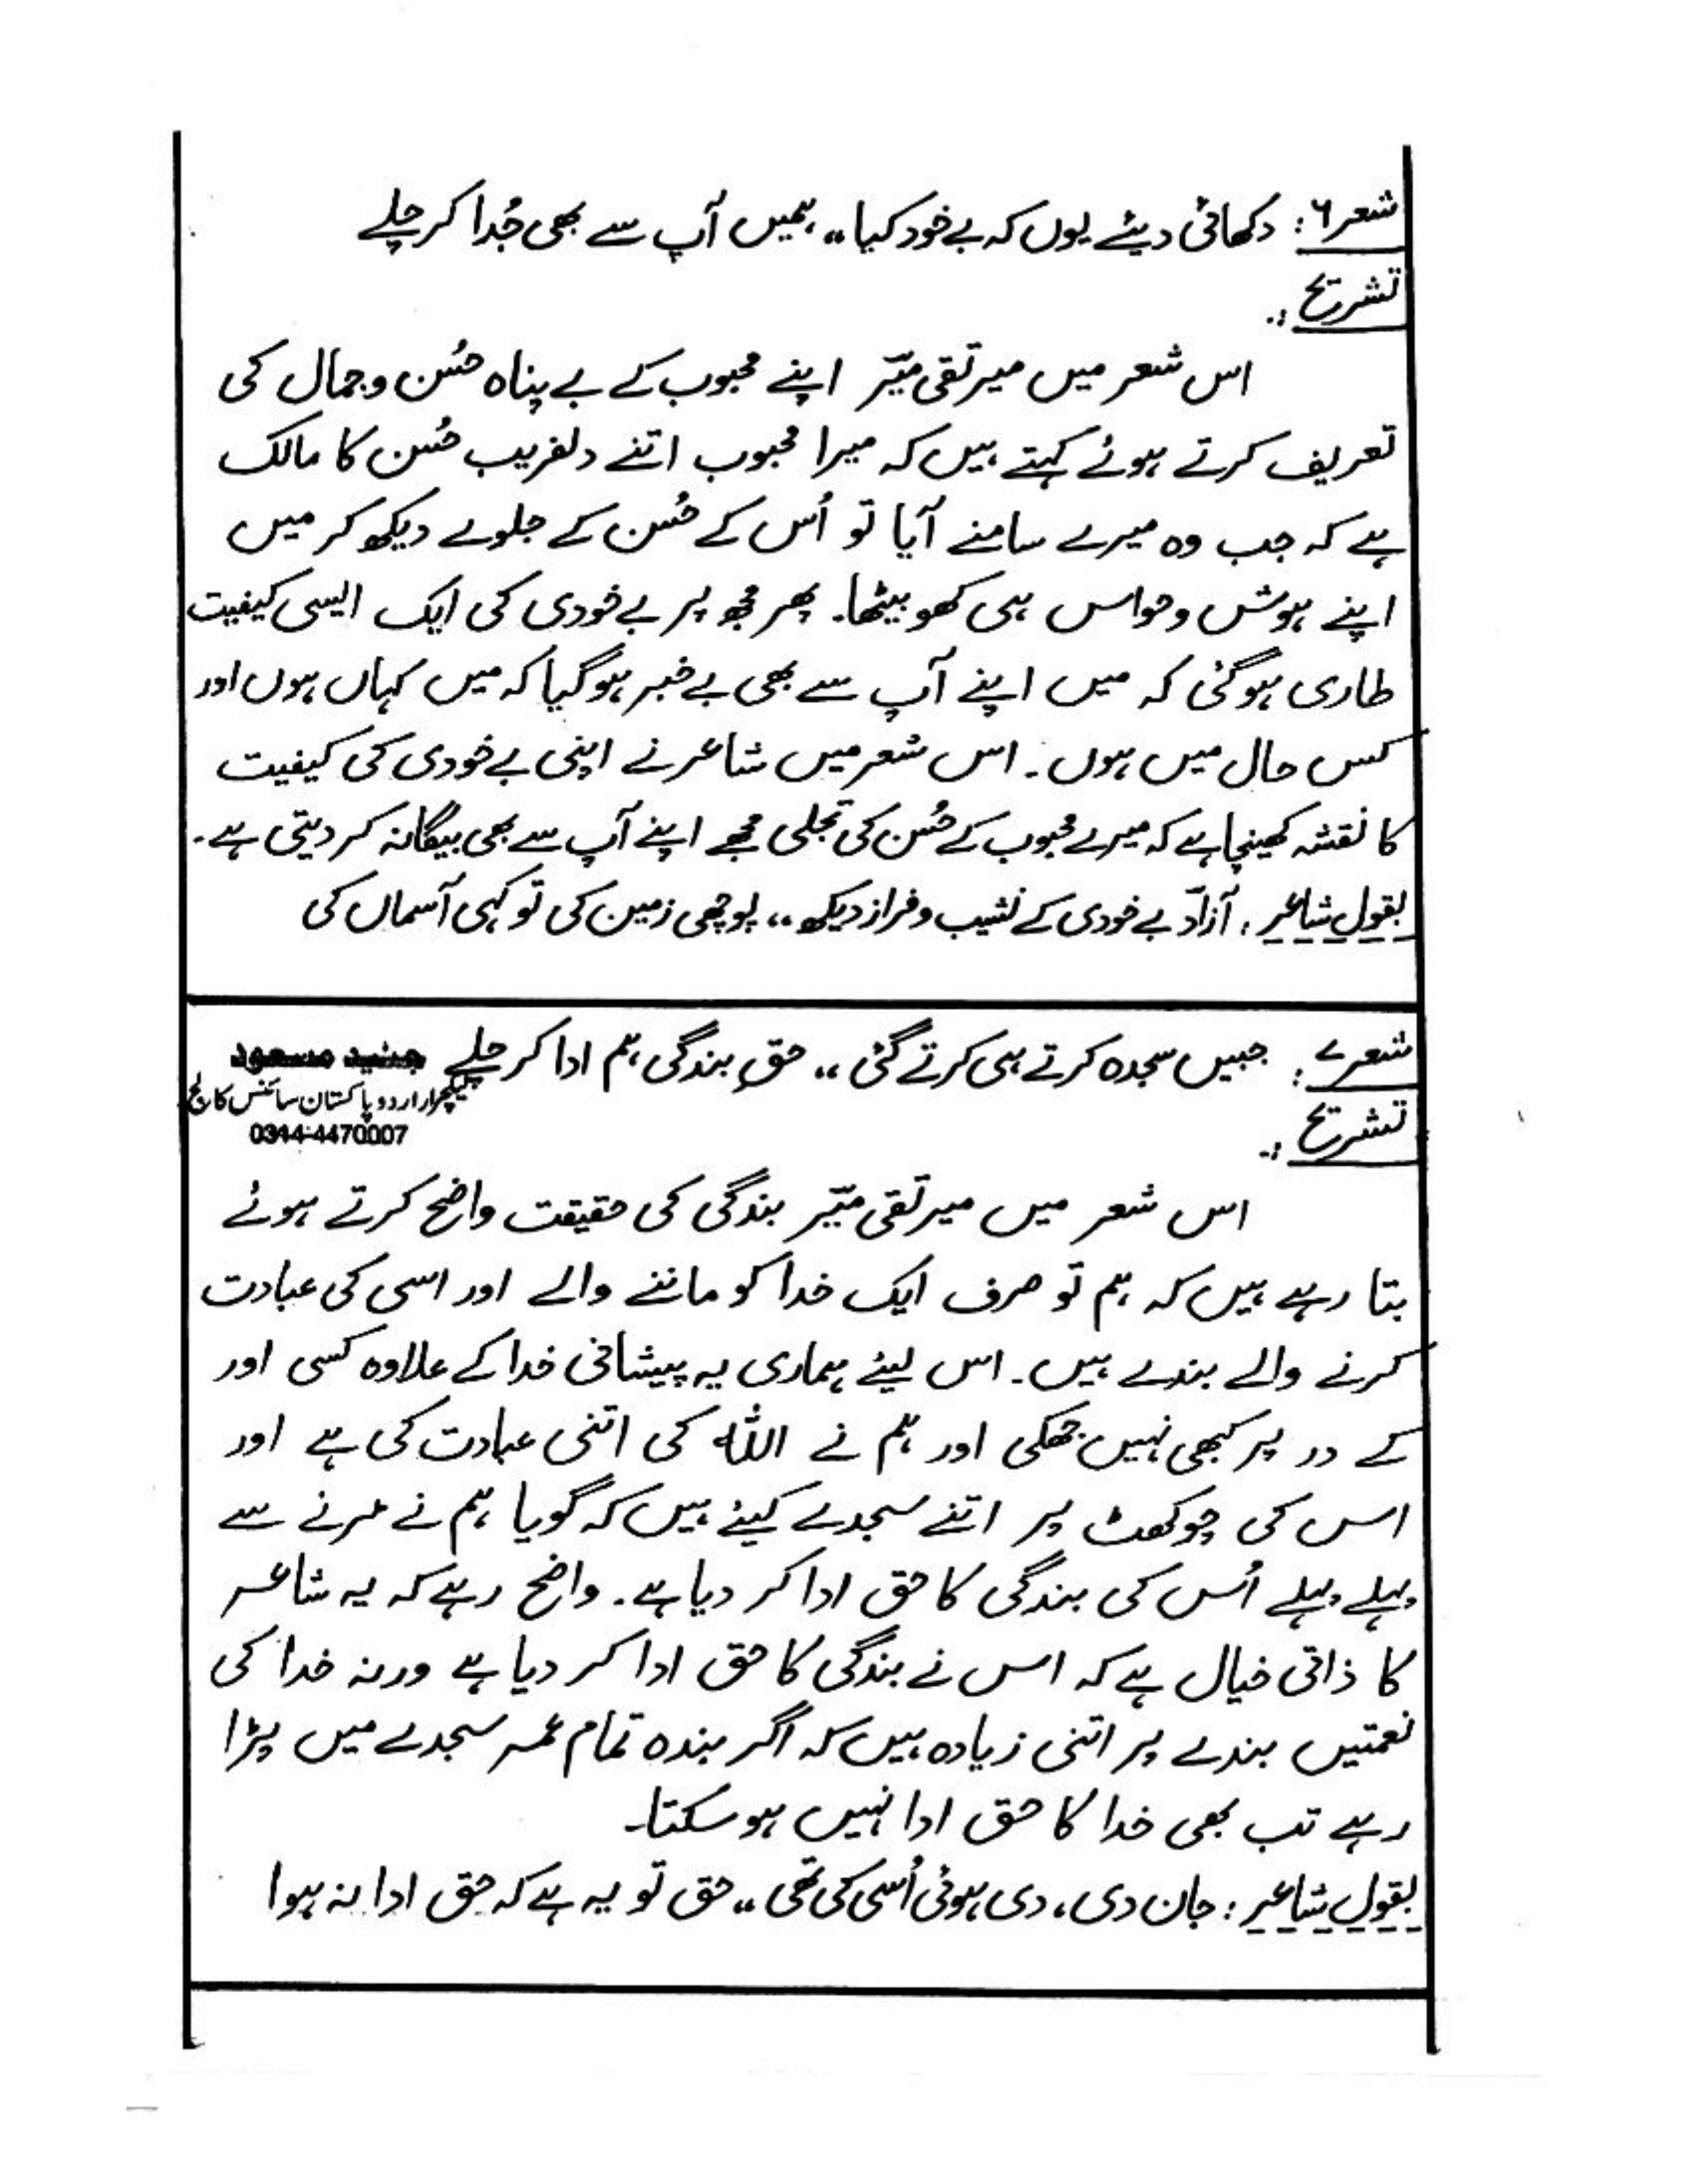 شعر ۶: دکھائی دیئے یوں کہ بے خود کیا ،، ہمیں آپ سے بھی جُدا کر چلے
تشریح :۔
اس شعر میں میر تقی میؔر اپنے محبوب کے بے پناہ حُسن و جمال کی
تعریف کرتے ہوئے کہتے ہیں کہ میرا محبوب اتنے دلفریب حُسن کا مالک
ہے کہ جب وہ میرے سامنے آیا تو اُس کے حُسن کے جلوے دیکھ کر میں
اپنے ہوش و حواس ہی کھو بیٹھا۔ پھر مجھ پر بے خودی کی ایک ایسی کیفیت
طاری ہوگئی کہ میں اپنے آپ سے بھی بے خبر ہوگیا کہ میں کہاں ہوں اور
کس حال میں ہوں۔ اس شعر میں شاعر نے اپنی بے خودی کی کیفیت
کا نقشہ کھینچا ہے کہ میرے محبوب کے حُسن کی تجلی مجھے اپنے آپ سے بھی بیگانہ کر دیتی ہے۔
بقول شاعر : آزاؔد بے خودی کے نشیب و فراز دیکھ ،، پوچھی زمین کی تو کہی آسماں کی
شعر ۷: جبیں سجدہ کرتے ہی کرتے گئی ،، حقِ بندگی ہم ادا کر چلے
جنید مسعود
لیکچرار اردو پاکستان سائنس کالج
0344-4470007
تشریح :۔
اس شعر میں میر تقی میؔر بندگی کی حقیقت واضح کرتے ہوئے
بتا رہے ہیں کہ ہم تو صرف ایک خدا کو ماننے والے اور اسی کی عبادت
کرنے والے بندے ہیں۔ اس لیئے ہماری یہ پیشانی خدا کے علاوہ کسی اور
کے در پر کبھی نہیں جھکی اور ہم نے اللہ کی اتنی عبادت کی ہے اور
اس کی چوکھٹ پر اتنے سجدے کیئے ہیں کہ گویا ہم نے مرنے سے
پہلے پہلے اُس کی بندگی کا حق ادا کر دیا ہے۔ واضح رہے کہ یہ شاعر
کا ذاتی خیال ہے کہ اس نے بندگی کا حق ادا کر دیا ہے ورنہ خدا کی
نعمتیں بندے پر اتنی زیادہ ہیں کہ اگر بندہ تمام عمر سجدے میں پڑا
رہے تب بھی خدا کا حق ادا نہیں ہو سکتا۔
بقول شاعر : جان دی، دی ہوئی اُسی کی تھی ،، حق تو یہ ہے کہ حق ادا نہ ہوا